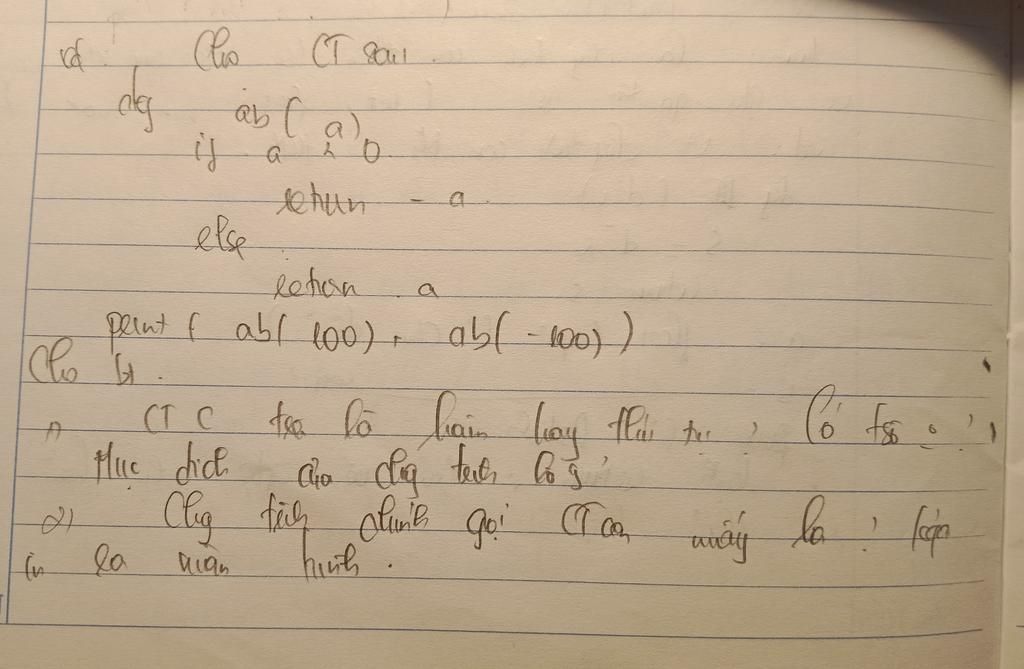 vd Cho CT sau:
def ab( a)
if a < 0
return - a
else
return a
print ( ab( 100), ab( -100) )
Cho bt.
1) CTC trên là hàm hay thủ tục ? Có tsố ?
Mục đích của chg trình là gì
2) Chg trình chính gọi CT con mấy lần ?
in ra màn hình .